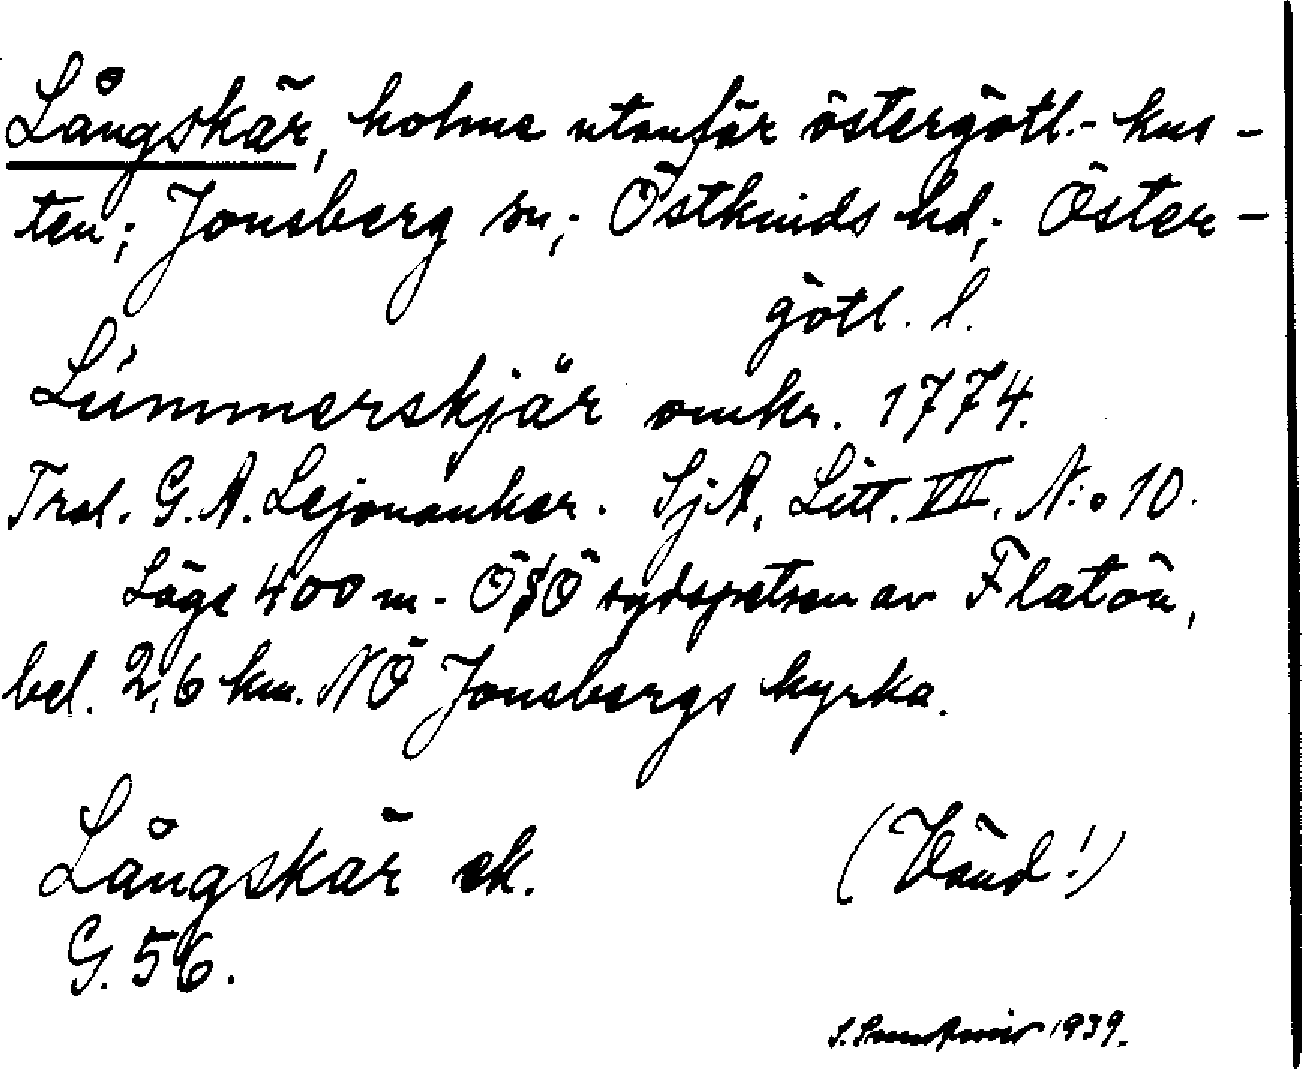 Långskär, holme utanför östergötl.- kus-
ten; Jonsberg sn; Östkinds hd; Öster-
götl. l.
Lümmerskjär omkr. 1774.
Trol. G. A. Lejonanker. SjA, Litt. VII. N:o 10.
Läge 400 m. ÖSÖ sydspetsen av Flatön,
bel. 2,6 km. NÖ Jonsbergs kyrka.
Långskär ek.
G. 56.
(Vänd!)
S. 1939.